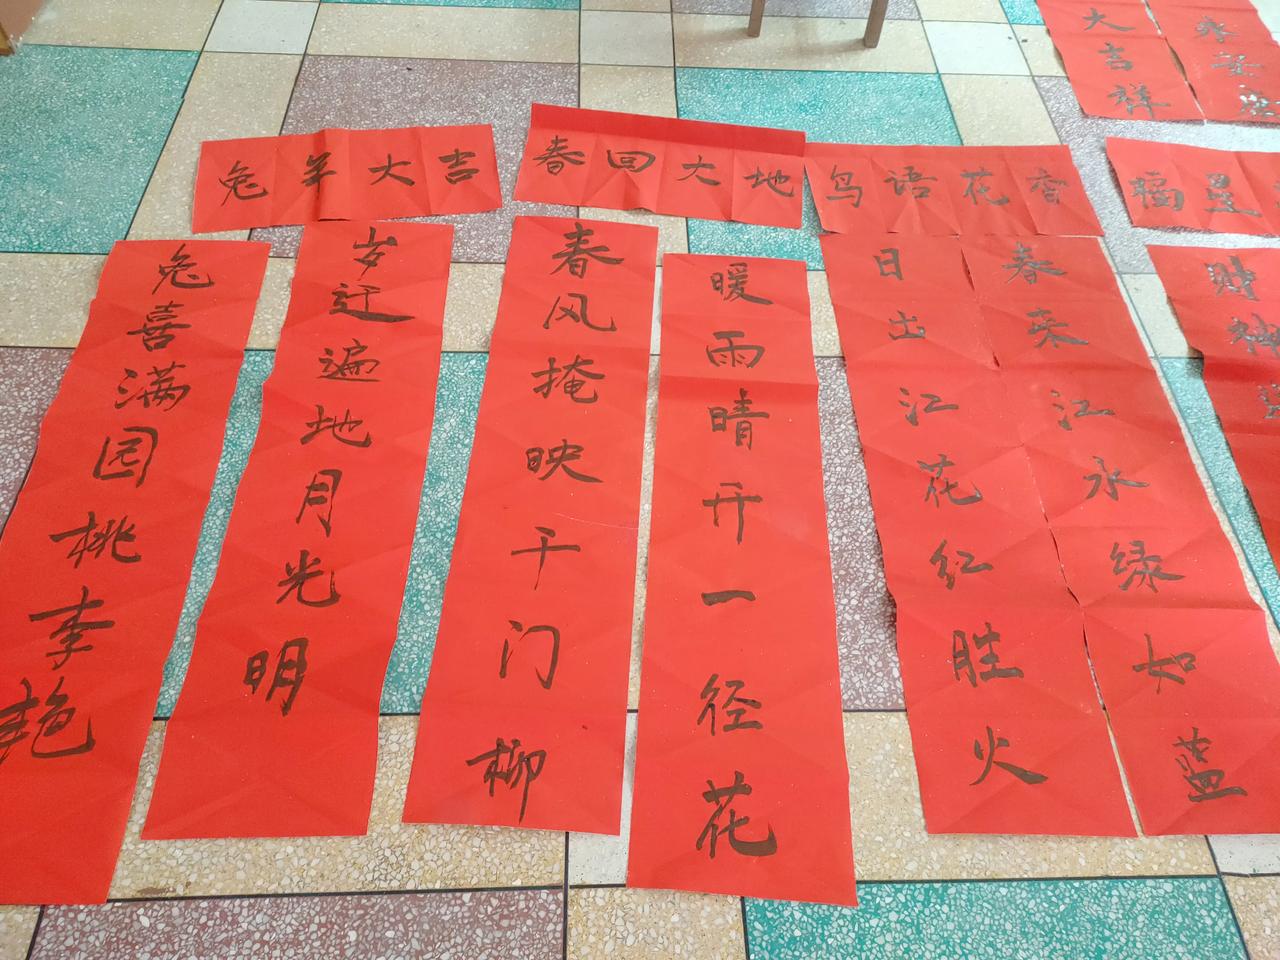 兔年大吉
兔喜满园桃李艳
岁迁遍地月光明
春回大地
春风掩映千门柳
暖雨晴开一径花
鸟语花香
日出江花红胜火
春来江水绿如蓝
大吉祥
永安康
福星
财神